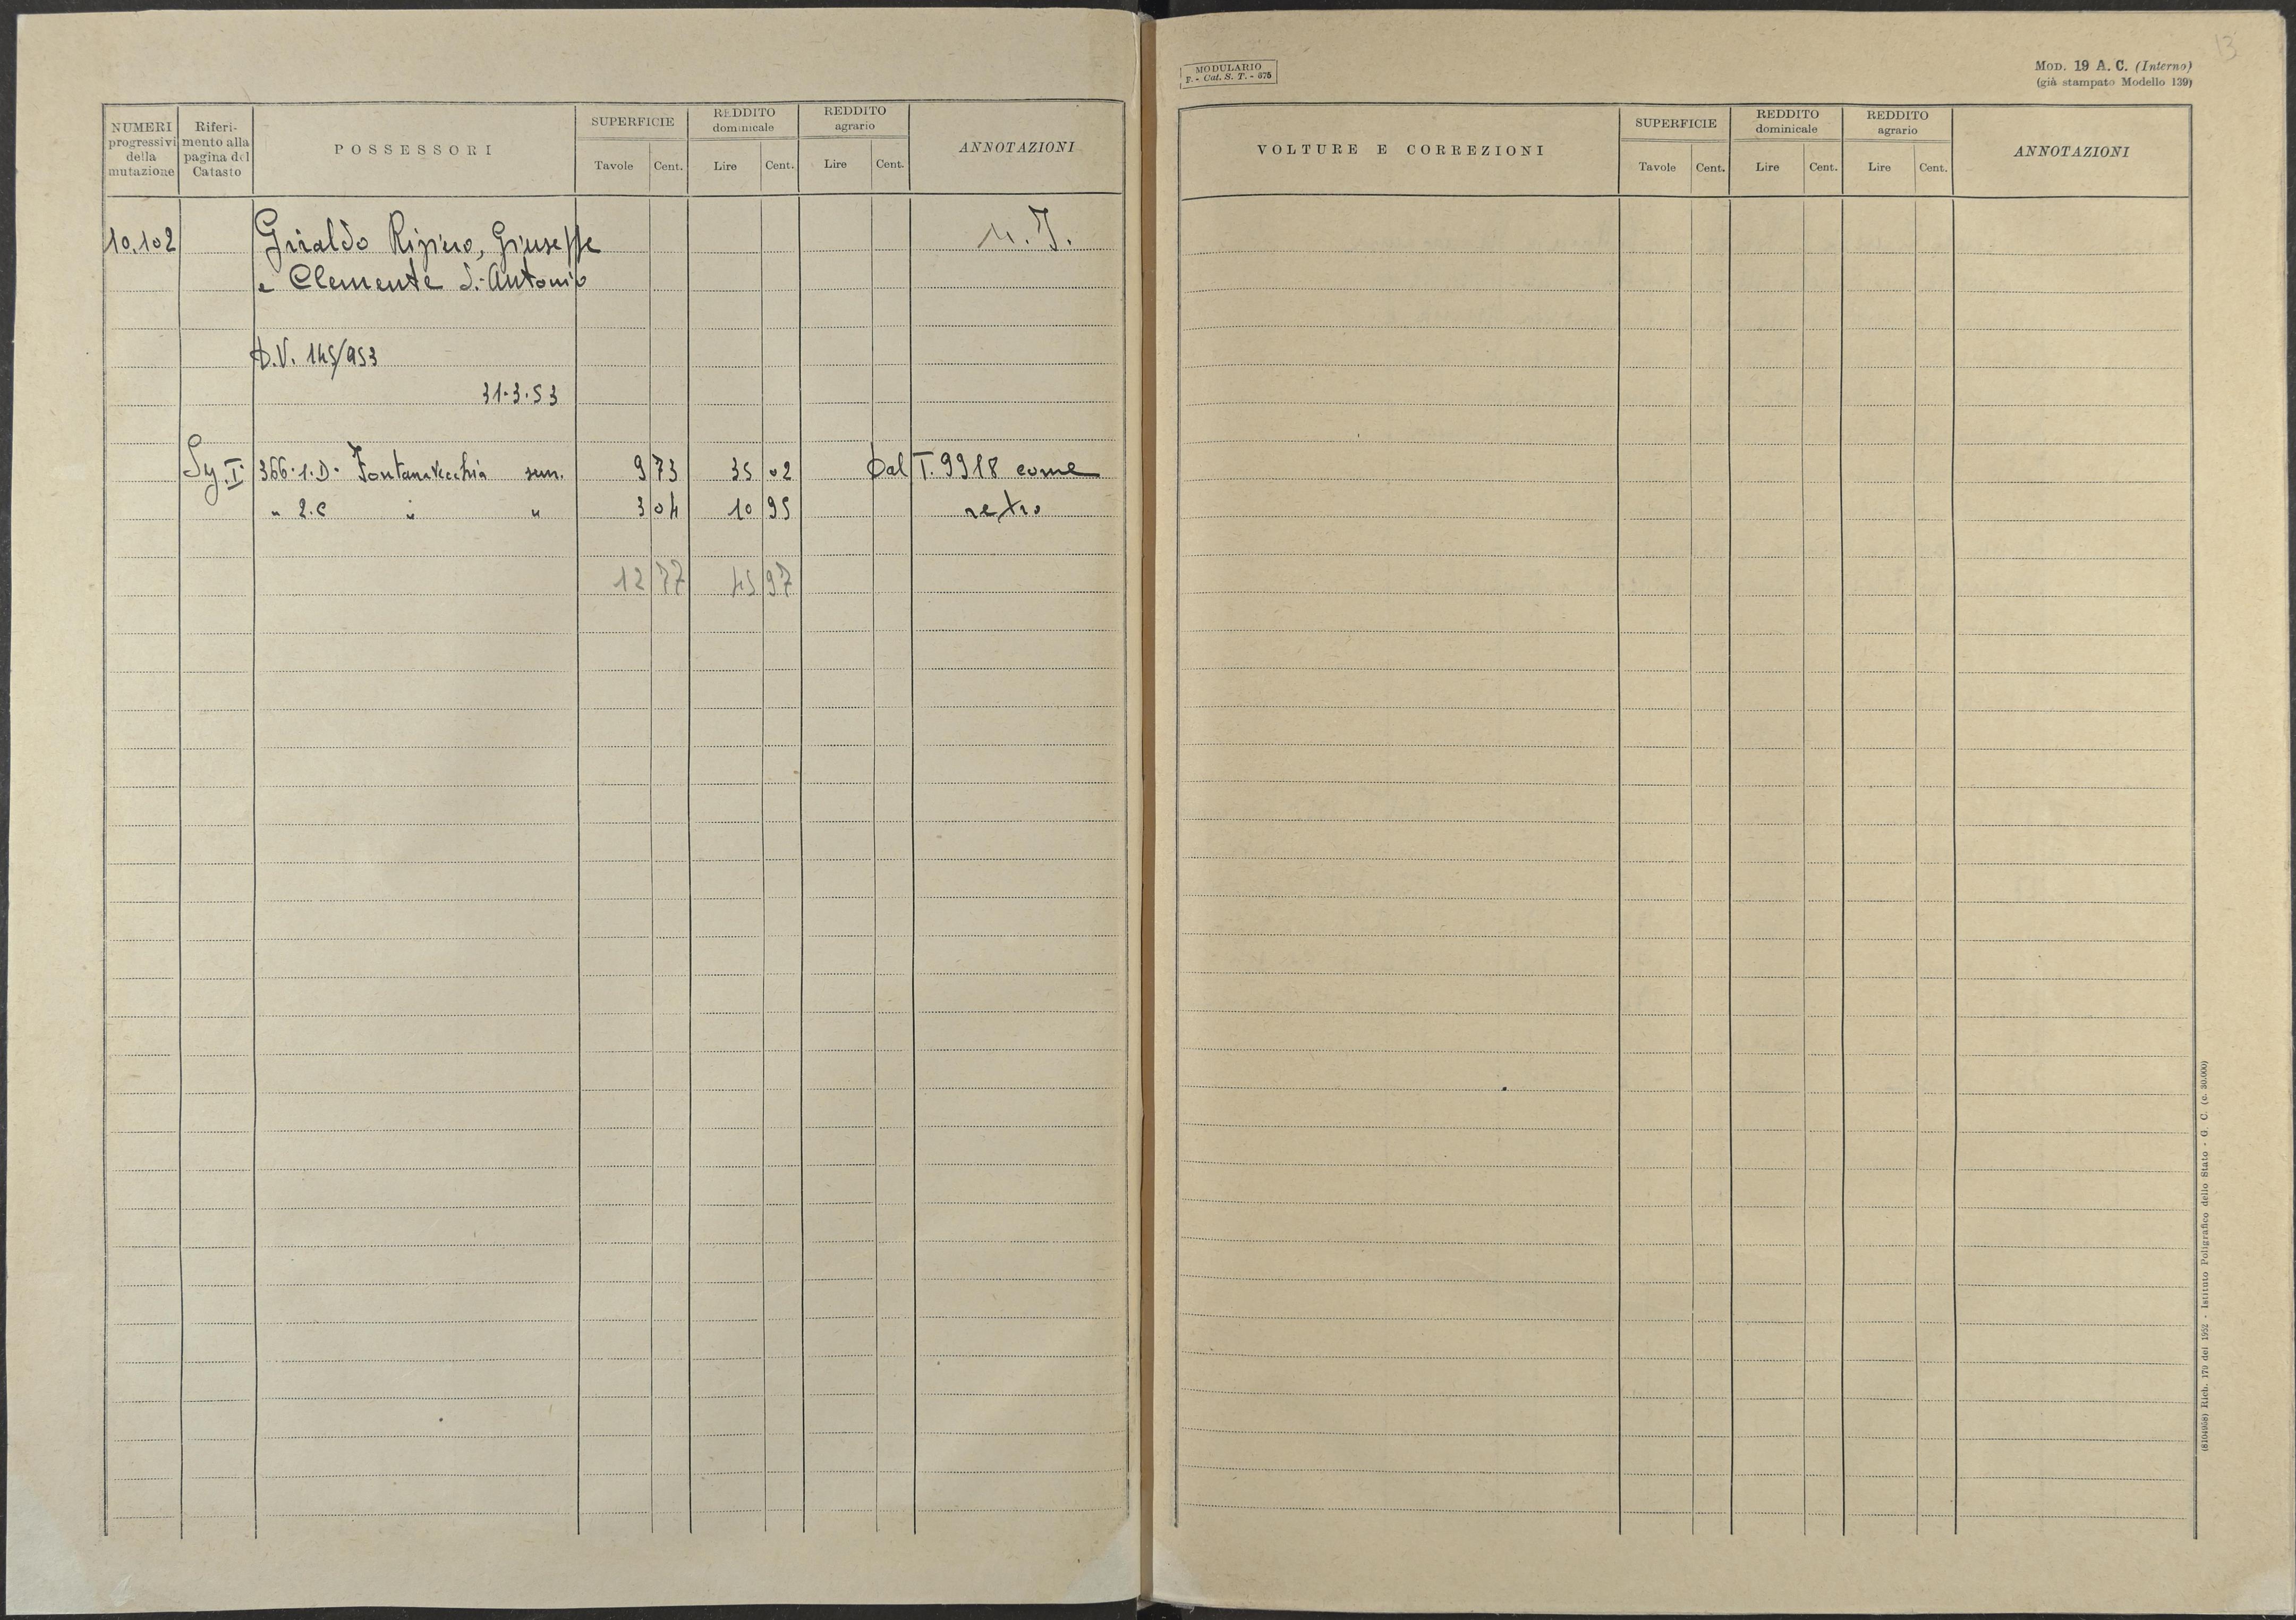 NUMERI progressivi della mutazione
Riferimento alla pagina del Catasto
POSSESSORI
SUPERFICIE
Tavole Cent.
REDDITO dominicale
Lire Cent.
REDDITO agrario
Lire Cent.
ANNOTAZIONI
10.102 Giraldo Ripiero, Giuseppe
e Clemente di Antonio
D.V. 145/953
31.3.53
I. 366.1.D. Fontanavecchia sem. 9 73 35 02 Dal T. 9918 come
" 2.C " " 3 04 10 95 retro
12 77 45 97
MODULARIO
F. - Cat. S. T. - 675
13
MOD. 19 A. C. (Interno)
(già stampato Modello 139)
VOLTURE E CORREZIONI
SUPERFICIE
Tavole Cent.
REDDITO dominicale
Lire Cent.
REDDITO agrario
Lire Cent.
ANNOTAZIONI
(8104058) Rich. 179 del 1952 - Istituto Poligrafico dello Stato - G. C. (c. 30.000)